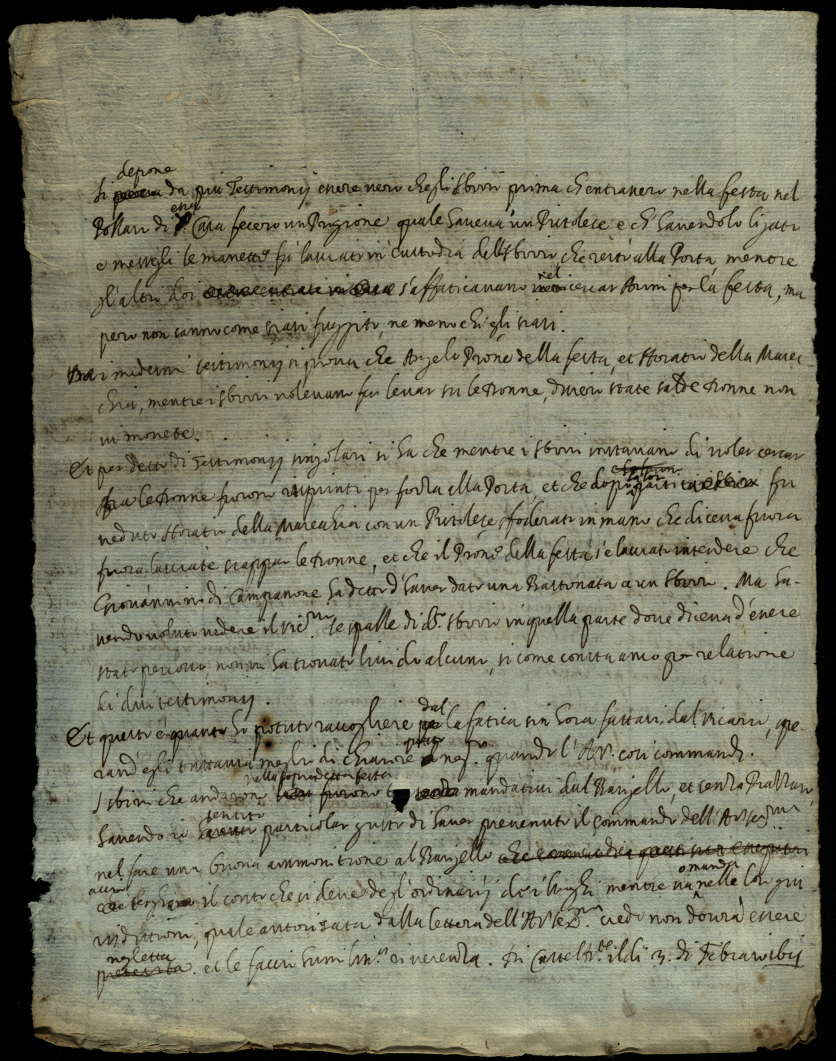 depone
Si da più Testimonij essere vero che gli sbirri prima ch'entrassero nella festa nel
Pollari di Casa fecero un Prigione quale haveva un Pistolese e ch' havendolo ligato
e messegli le manette fù lasciato in custodia dello sbirro che restò alla Porta mentre
gl'altri doi s'affaticavano nel cercar Armi per la festa, ma
pero non sanno come siasi fuggito, ne meno chi egli siasi.
i medesimi testimonij si prova che Angelo Prone della festa, et Horatio della Marec-
chia, mentre i sbirri volevano far levar su le donne, dissero state salde donne non
vi movete.
Et per detto di Testimonij singolari si sa che mentre i sbirri di voler cercar
fra le donne furono rispinti per forza alla Porta, et che dopo fu
veduto Horatio della Marecchia con un Pistolese sfoderato in mano che diceva fuora
fuora lasciate scappar le donne, et che il Prone della festa s'è lasciato intendere che
Giovannino di Campanone ha detto d'haver dato una Bastonata a un sbirro. Ma ha-
vendo voluto vedere il le spalle di do. sbirro in quella parte dove diceva d'essere
stato percosso, non vi ha trovato livido alcuno, si come consta anco per relatione
di dui testimonij.
Et questo è quanto si è potuto raccogliere dal la fatica sin hora fattasi dal Vicario, spe-
rand'egli tuttavia meglio di chiarire quando l'A.V. così commandi.
nella sopradetta festa
I sbirri che andarono mandativi dal Bargello, et senza
sentito
Havendo io particolar gusto di haver prevenuto il commando dell'A.V. Serma
nel fare una buona ammonitione al Bargello
accio tenghi il conto che si deve degl'ordinarij de i luoghi mentre và nelle loro giu-
risdittioni, quale autorisata dalla lettera dell'A.V. credo non dovrà essere
negletta
et le faccio humilma riverenza. Di il di 3. di Febraro